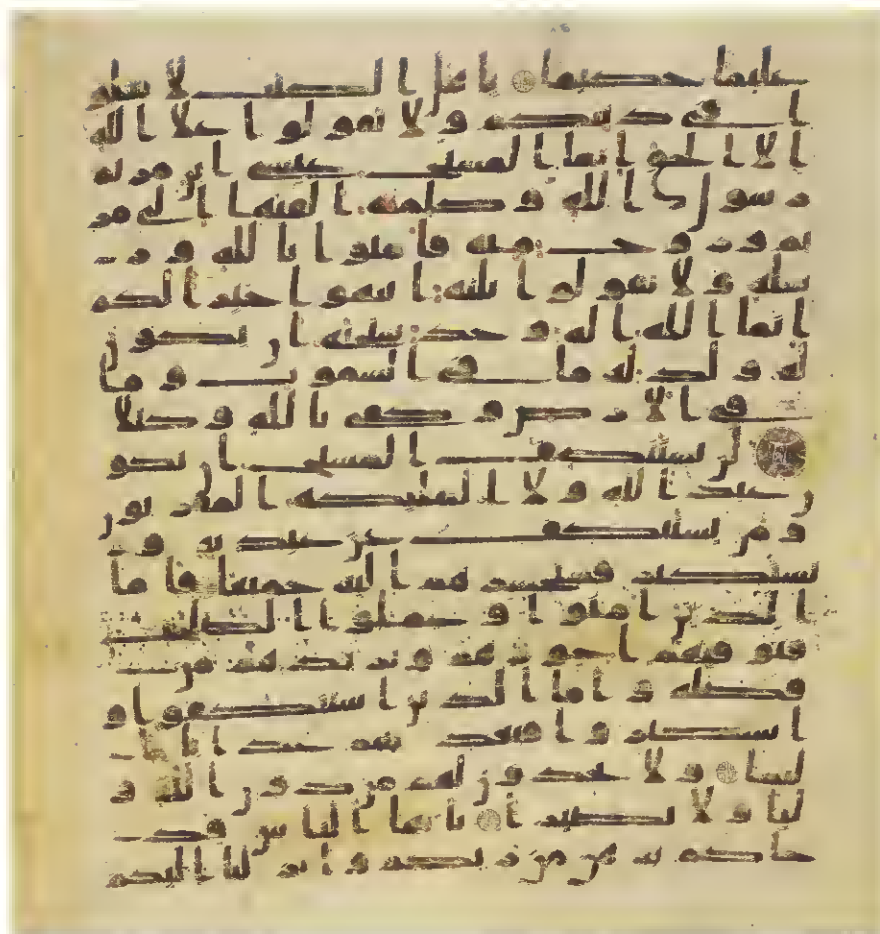 عليما حكيما ياهل الكتب لا تغلو
ا في دينكم ولا تقولوا علا الله
الا الحق انما المسيح عيسى ابن مريم
رسول الله وكلمته القيها الى مر
يم وروح منه فامنوا بالله ور
سله ولا تقولوا ثلثه انتهوا خيرا لكم
انما الله اله وحد سبحنه ان يكون
له ولد له ما في السموت وما
في الارض وكفى بالله وكيلا
لن يستنكف المسيح ان يكو
ن عبدا لله ولا الملئكه المقربون
ومن يستنكف عن عبدته و
يستكبر فسيحشرهم اليه جميعا فاما
الذين امنوا وعملوا الصلحت
فيوفيهم اجورهم ويزيدهم من
فضله واما الذين استنكفوا و
استكبروا فيعذبهم عذابا ا
ليما ولا يجدون لهم من دون الله و
ليا ولا نصيرا يايها الناس قد
جاكم برهن من ربكم وانزلنا اليكم